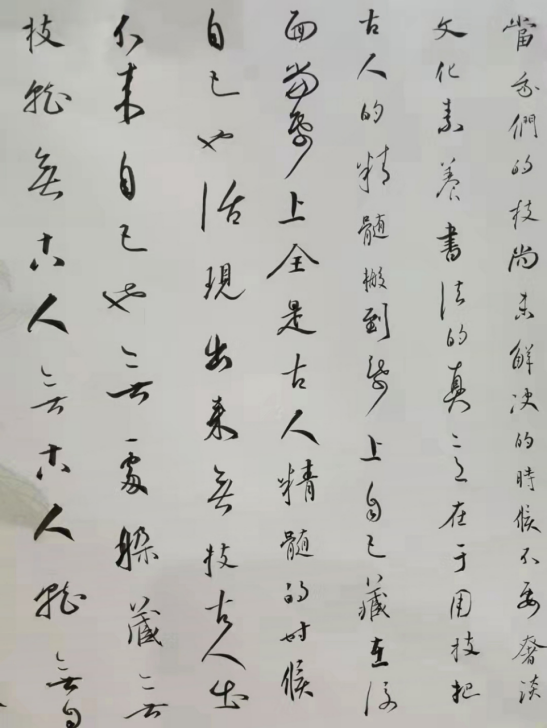 當我們的技尚未解决的時候不要奢談
文化素養書法的真意在于用技把
古人的精髓搬到紙上自己藏在後
面當紙上全是古人精髓的时候
自己也活現出来無技古人出
不来自己也無處躲藏無
技就無古人無古人就無自